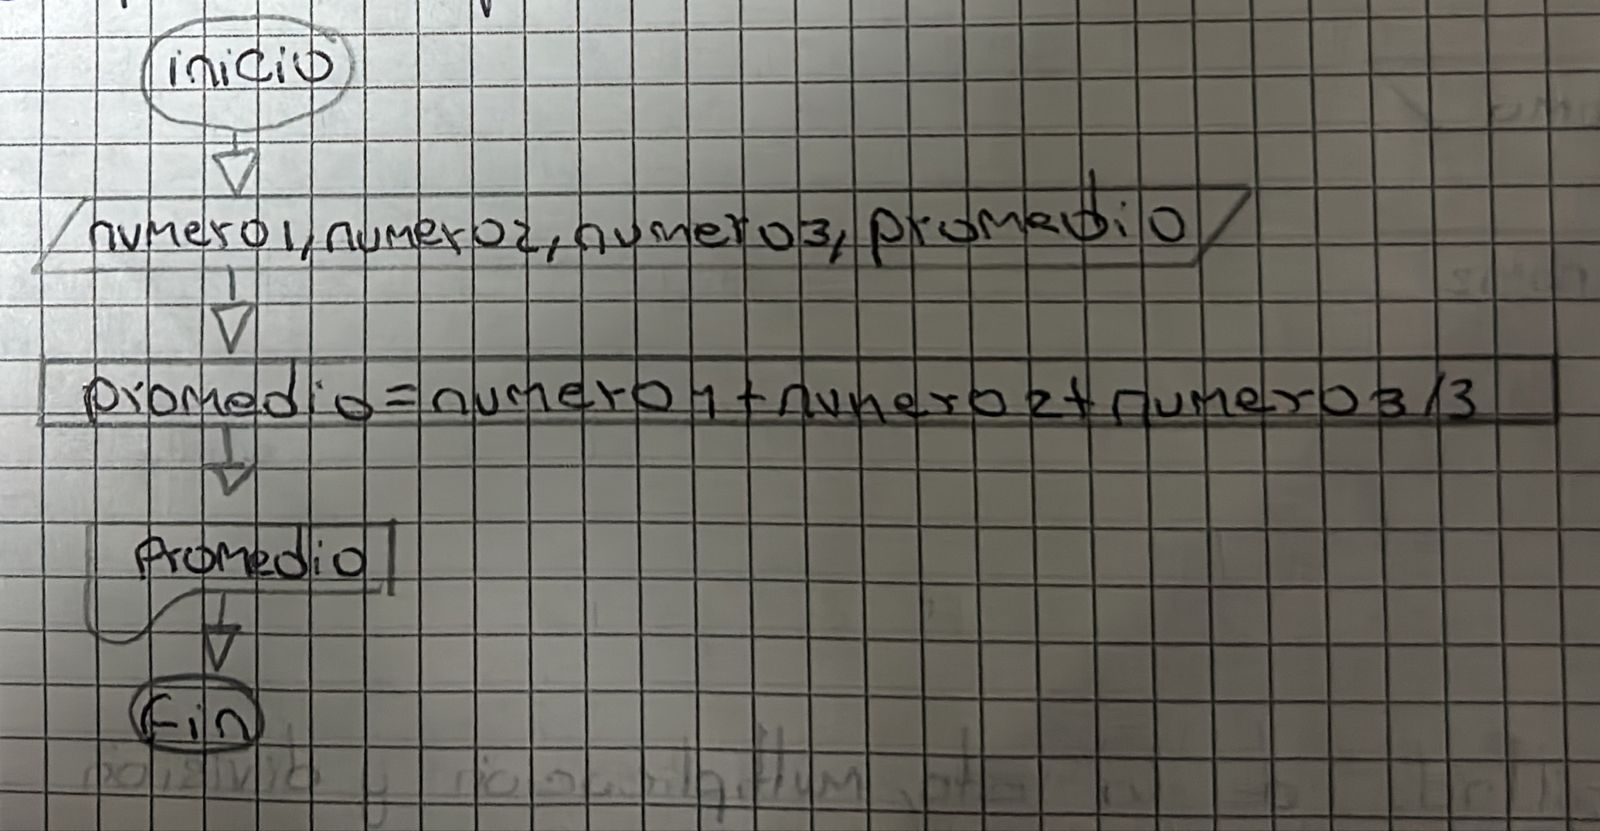 inicio
numero1, numero2, numero3, promedio
promedio = numero1 + numero2 + numero3 /3
promedio
Fin